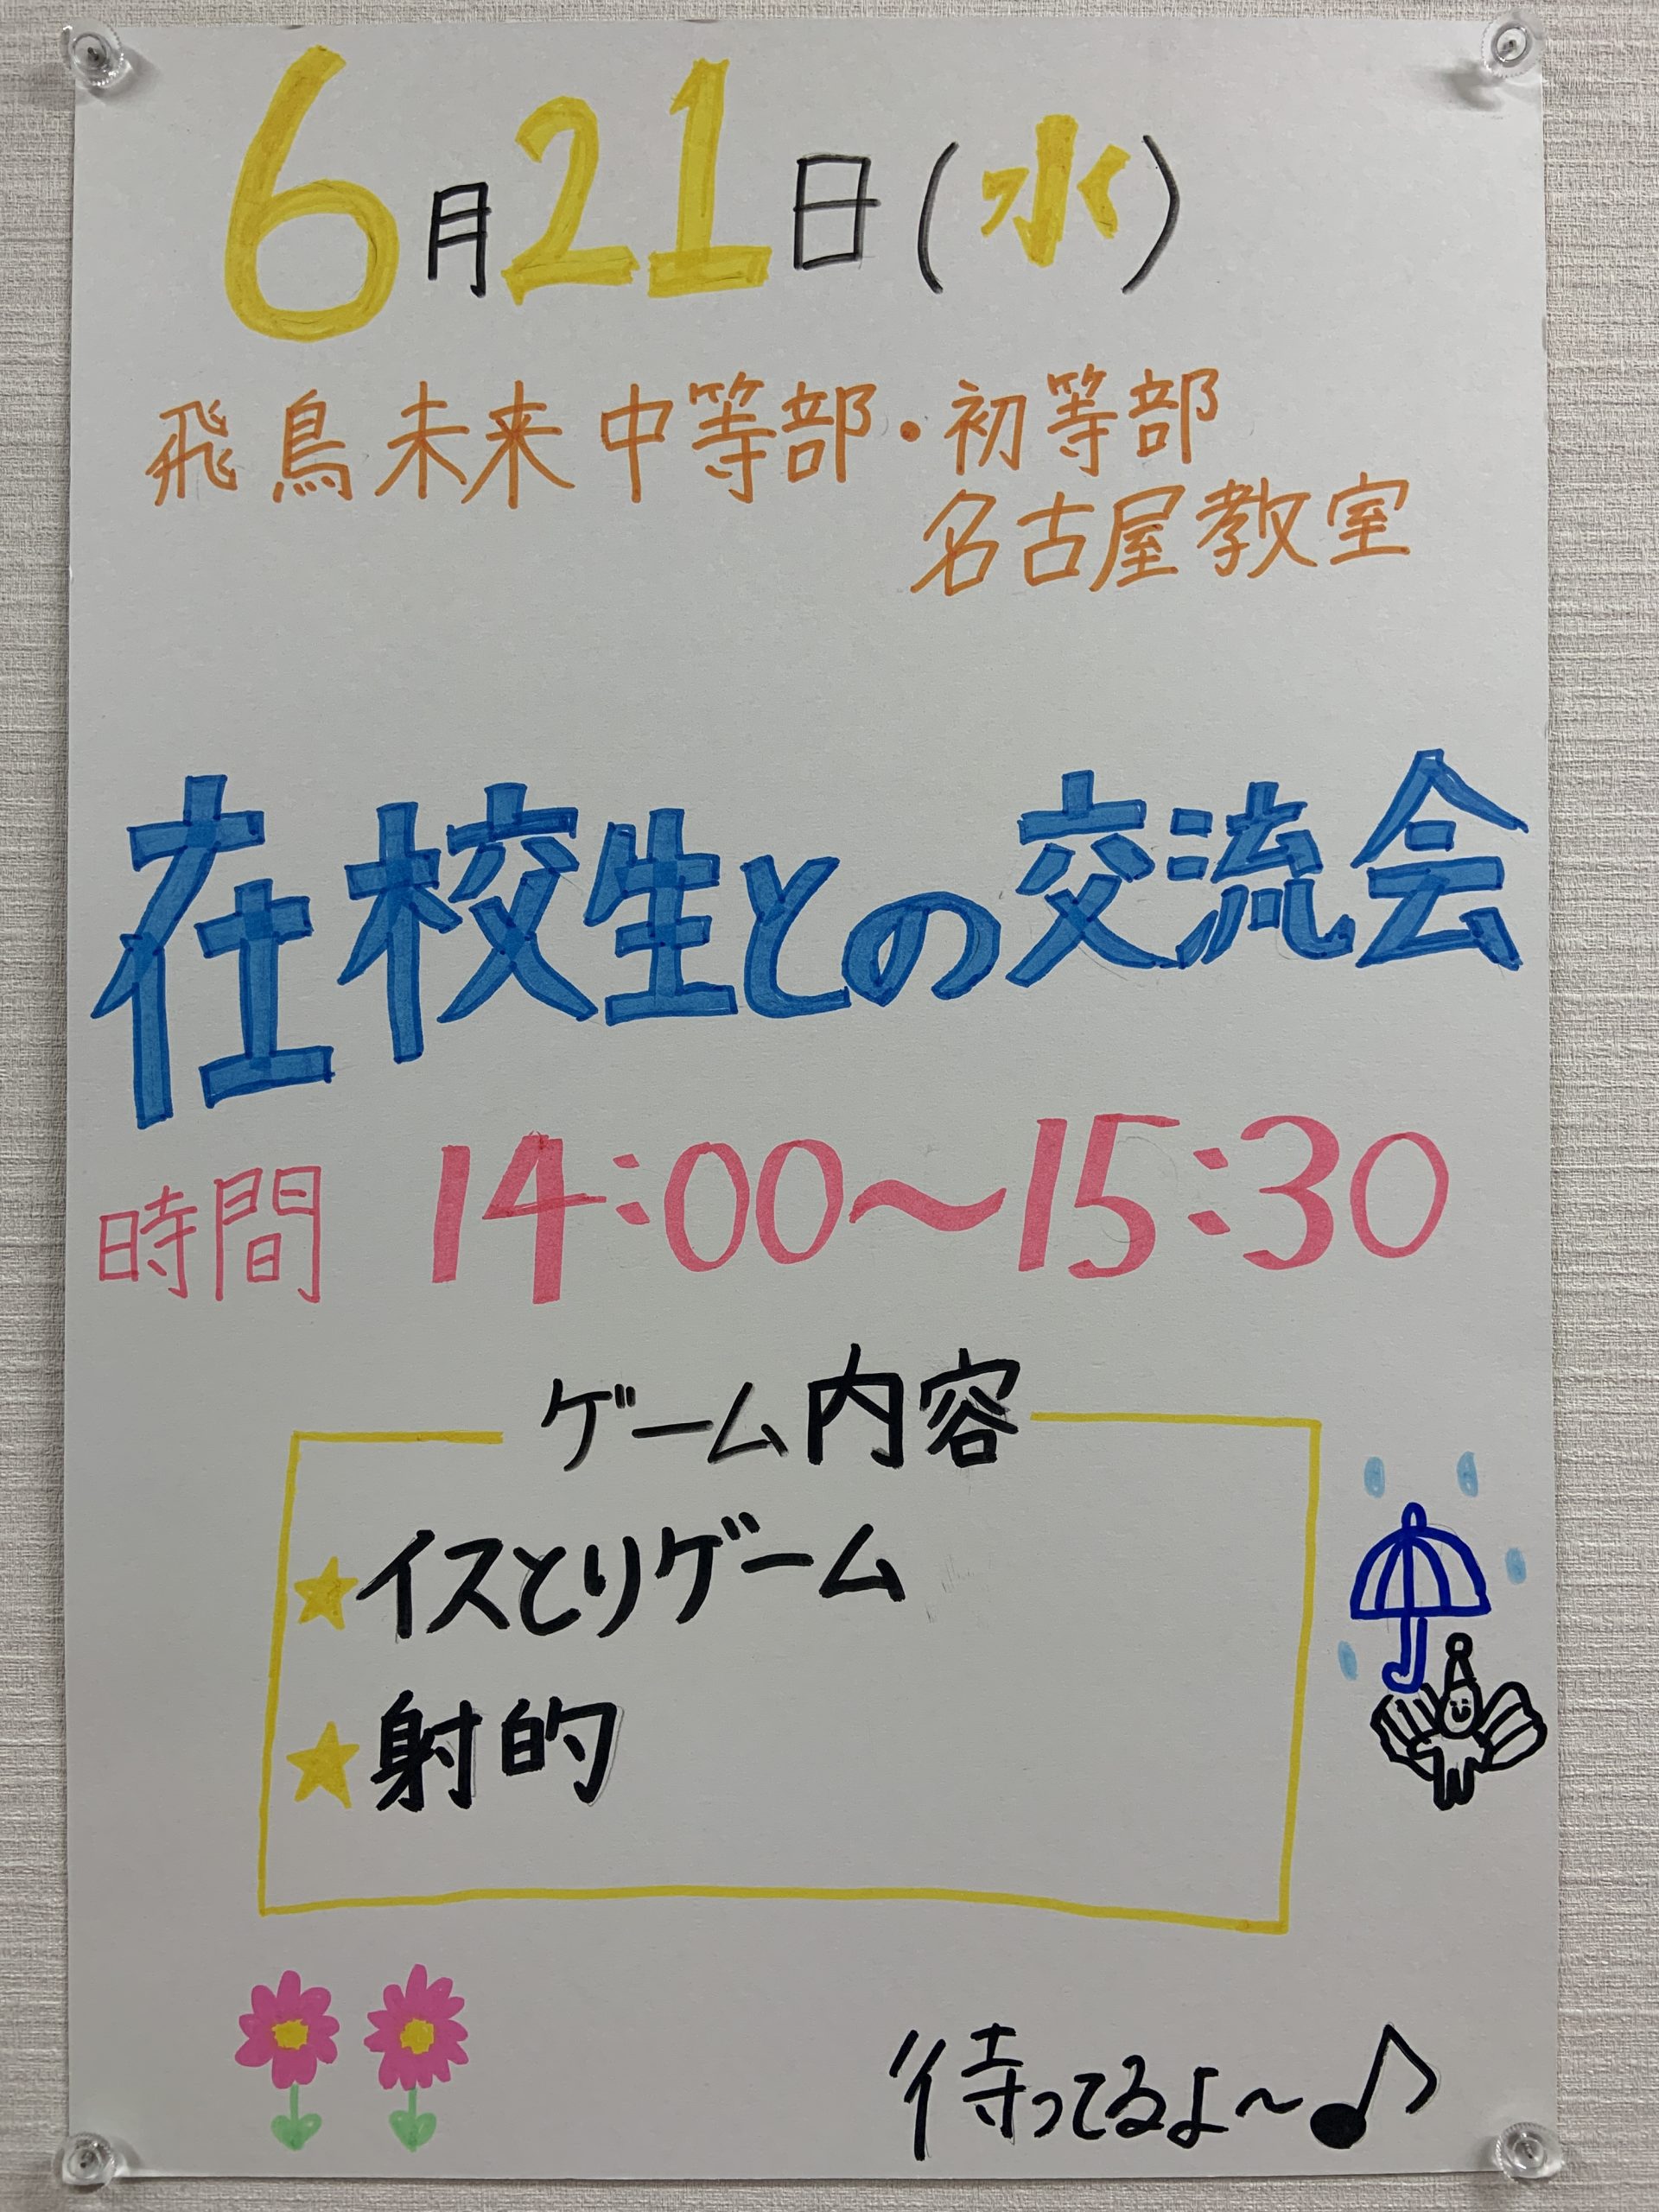 6月21日(水)
飛鳥未来中等部・初等部
名古屋教室
在校生との交流会
時間 14:00〜15:30
ゲーム内容
★イスとりゲーム
★射的
待ってるよ〜♪